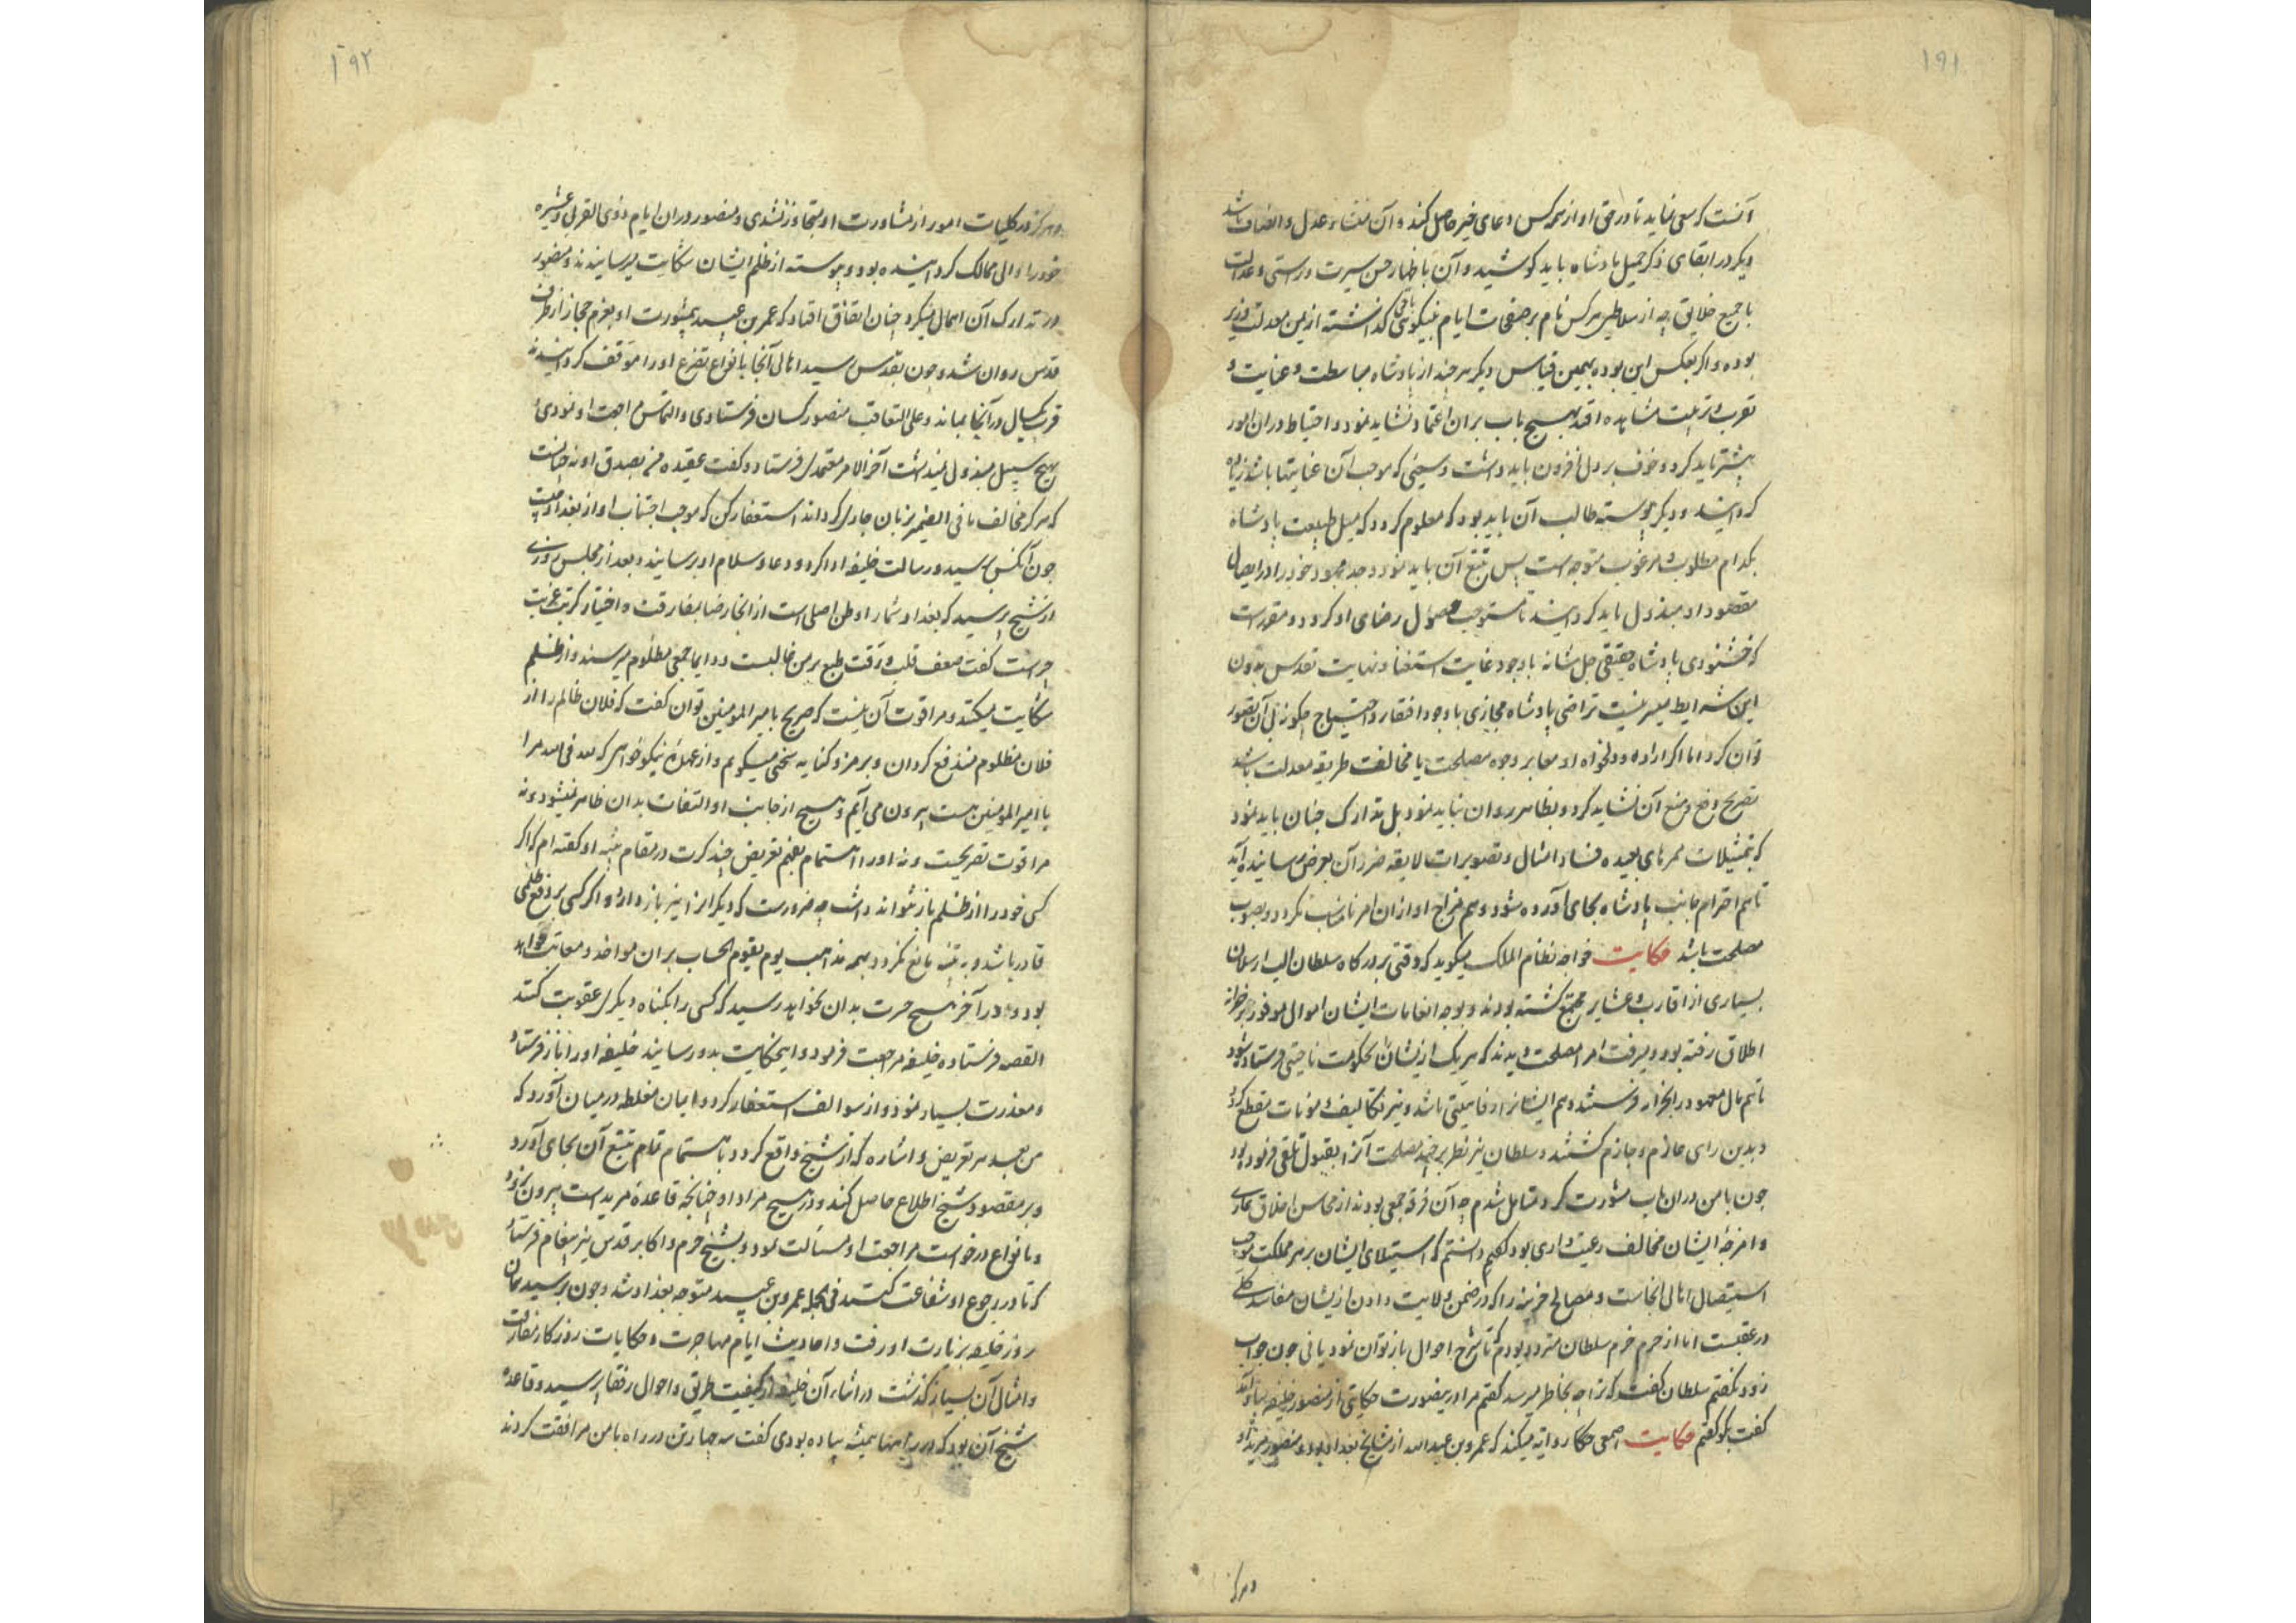 ۱۹۱
آنست که سعی نماید تا در حق او از همه کس دعای خیر حاصل کند و آن منشاء عدل و انصاف باشد
دیگر در ابقای ذکر جمیل پادشاه باید کوشید و آن باظهار حسن سیرت و راستی و عدالت
با جمیع خلایق چه از سلاطین هر کس نام بر صفحات ایام بنیکویی باقی گذاشته از یمن معدلت وزیر
بوده و اگر بعکس این بوده بهمین قیاس دیگر هر چند از پادشاه مباسطت و عنایت و
تقرب و تربیت مشاهده افتد بهیچ باب بران اعتماد نشاید نمود و احتیاط دران امور
بیشتر باید کرد و خوف بر دل افزون باید داشت و سعیی که موجب آن عنایتها باشد زیاده
گردانید و دیگر پیوسته طالب آن باید بود که معلوم گردد که میل طبیعت پادشاه
بکدام مطلوب و مرغوب متوجه است پس تتبع آن باید نمود و جد و جهد خود را در ایصال
مقصود او مبذول باید گردانید تا مستوجب حصول رضای او گردد و مقررست
که خشنودی پادشاه حقیقی جل شانه با وجود غایت استغنا و نهایت تقدس بدون
این شرایط میسر نیست تراضی پادشاه مجازی با وجود افتقار و احتیاج چگونه بی آن تصور
توان کرد اما اگر اراده و دلخواه او مغایر وجوه مصلحت یا مخالف طریقه معدلت باشد
تصریح دفع و منع آن نشاید کرد و بظاهر روان نباید نمود بل تدارک چنان باید نمود
که بتمثیلات ممرهای بعیده فساد امثال و تصویرات لایقه ضرر آن بعرض رسانیده آید
تا هم احترام جانب پادشاه بجای آورده شود و هم مزاج او ازان امر نامناسب نگردد و بصوب
مصلحت باشد حکایت خواجه نظام الملک میگوید که وقتی بر درگاه سلطان الب ارسلان
بسیاری از اقارب و عشایر مجتمع گشته بودند و بوجه انعامات ایشان اموال موفور از خزانه
اطلاق رفته بود و میرفت امرا مصلحت دیدند که هر یک ازیشان بحکومت ناحیتی فرستاده شود
تا هم مال معهود در انجا فرستند و هم ایشانرا رفاهیتی باشد و نیز تکالیف و مؤنات منقطع گردد
و بدین رای عازم و جازم گشتند و سلطان نیز نظر بر چند مصلحت آنرا بقبول تلقی فرموده بود
چون با من دران باب مشورت کرد متامل شدم چه آن فرقه جمعی بودند از محاسن اخلاق عاری
و امزجه ایشان مخالف رعیت داری بود گفتم دانستم که استیلای ایشان بر هر مملکت موجب
استیصال اهالی انجاست و مصالح خزینه را که در ضمن ولایت دادن ازیشان مفاسد کلی
در عقبست اما از حرم خرم سلطان متردد بودم که تا شرح احوال باز توان نمود یا نی چون جواب
زود نگفتم سلطان گفت که ترا چه بخاطر میرسد گفتم مرا درینصورت حکایتی از منصور خلیفه بیاد آمد
گفت بگو گفتم حکایت اصمعی حکا روایه میکند که عمرو بن عبدالله از مشایخ بغداد بود و منصور مرید او
و هرگز
۱۹۲
و هرگز در کلیات امور از مشاورت او متجاوز نشدی و منصور دران ایام ذوی القربی و عشیره
خود را والی ممالک گردانیده بود و پیوسته از ظلم ایشان شکایت میرسانیدند و منصور
در تدارک آن اهمال میکرد چنان اتفاق افتاد که عمر بن عبید بیمشورت او بعزم حجاز از طرف
قدس روان شد و چون بقدس رسید اهالی آنجا بانواع تضرع او را موقف گردانیدند
قرب یکسال در آنجا بماند و علی التعاقب منصور کسان فرستادی و التماس مراجعت او نمودی
بهیچ سبیل مبذول نمیداشت آخر الامر معتمدی فرستاد و گفت عقیده من بصدق او نه چنانست
که هرگز مخالف ما فی الضمیر بزبان جاری گرداند استغفار کن که موجب اجتناب او از بغداد چیست
چون آنکس برسید و رسالت خلیفه ادا کرد و دعا و سلام او برسانید و بعد از مجلس روزی
از شیخ پرسید که بغداد شما را وطن اصلی است از انجا رضا بمفارقت و اختیار کربت غربت
چراست گفت ضعف قلب و رقت طبع بر من غالبست و دایما جمعی مظلوم میرسند و از ظلم
شکایت میکنند و مرا قوت آن نیست که صریح با امیر المومنین توان گفت که فلان ظالم را از
فلان مظلوم مندفع گردان و برمز و کنایه سخنی میگویم و از عهده نیکو خواهی که لله فی الله مرا
با امیر المومنین هست بیرون می آیم و هیچ از جانب او التفات بدان ظاهر نمیشود و نه
مرا قوت تصریحست و نه او را اهتمام بفهم تعریض چند کرت در مقام تنبیه او گفته ام که اگر
کسی خود را از ظلم باز نتواند داشت چه ضرورست که دیگرانرا نیز باز دارد و اگر کسی بر دفع ظلمی
قادر باشد و به تنبیه مانع نگردد بهمه مذاهب یوم یقوم الحساب بران مواخذ و معاتب خواهد
بود و در آخر هیچ حسرت بدان نخواهد رسید که کسی را بگناه دیگری عقوبت کنند
القصه فرستاده خلیفه مراجعت فرمود و اینحکایت بدو رسانید خلیفه او را باز فرستاد
و معذرت بسیار نمود و از سوالف استغفار کرد و ایمان مغلظه درمیان آورد که
من بعد هر تعریض و اشاره که از شیخ واقع گردد باهتمام تمام تتبع آن بجای آورد
و بر مقصود شیخ اطلاع حاصل کند و در هیچ مراد او چنانچه قاعده مریدست بیرون نرود
و بانواع درخواست مراجعت او مسالت نمود و بشیخ حرم و اکابر قدس نیز پیغام فرستاد
که تا در رجوع او شفاعت کنند فی الجمله عمرو بن عبید متوجه بغداد شد و چون برسید همان
روز خلیفه بزیارت او رفت و احادیث ایام مهاجرت و حکایات روزگار مفارقت
و امثال آن بسیار گذشت در اثناء آن خلیفه از کیفیت طریق و احوال رفقا پرسید و قاعده
شیخ آن بود که در راهها همیشه پیاده بودی گفت سه چهار تن در راه با من مرافقت کردند